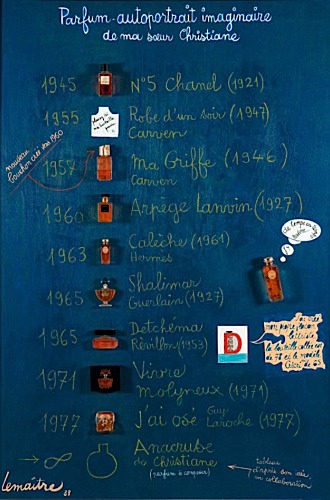 Parfum-autoportrait imaginaire
de ma sœur Christiane
1945 N°5 Chanel (1921)
1955 Robe d'un soir (1947)
Carven
1957 Ma Griffe (1946)
Carven
1960 Arpège Lanvin (1927)
1963 Calèche (1961)
Hermès
1965 Shalimar
Guerlain (1927)
1965 Detchéma
Révillon (1953)
D
1971 Vivre
Molyneux (1971)
1977 J'ai osé Guy
Laroche (1977)
∞ Anacruse
de Christiane
(parfum à composer)
tableau
d'après son avis,
en collaboration
Lemaître 88